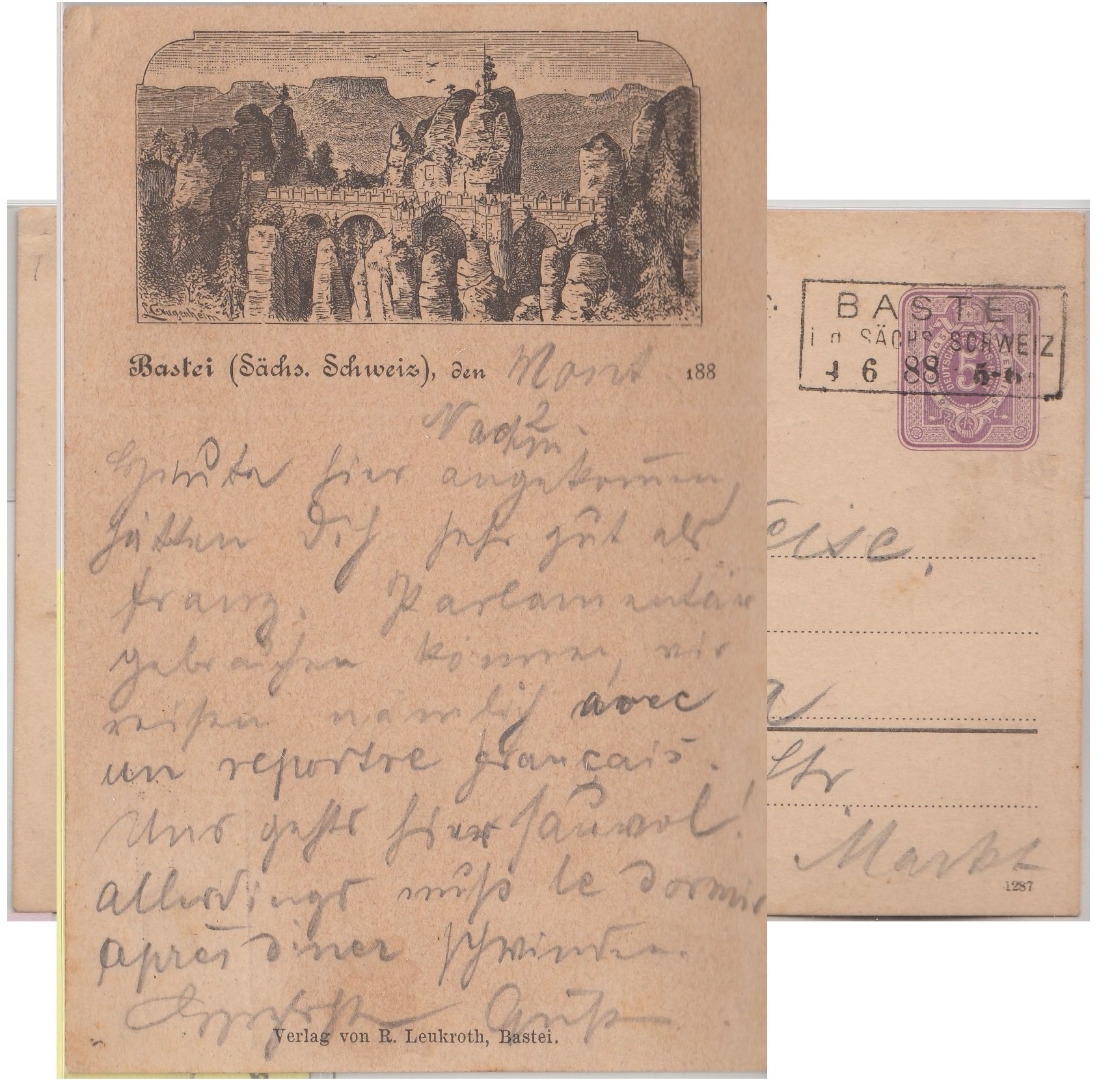 Bastei (Sächs. Schweiz), den Mont 188
Nachm.
Heute hier angekommen,
hätten Dich sehr gut als
franz. Parlamentär
gebrauchen können, wir
reisen nämlich avec
un reportre français.
Uns gehts hier sauwol!
Allerdings muß le dormir
après diner schwinden.
Verlag von R. Leukroth, Bastei.
BASTEI
i. d. SÄCHS. SCHWEIZ
4 6 88
5
Str.
Markt
1287